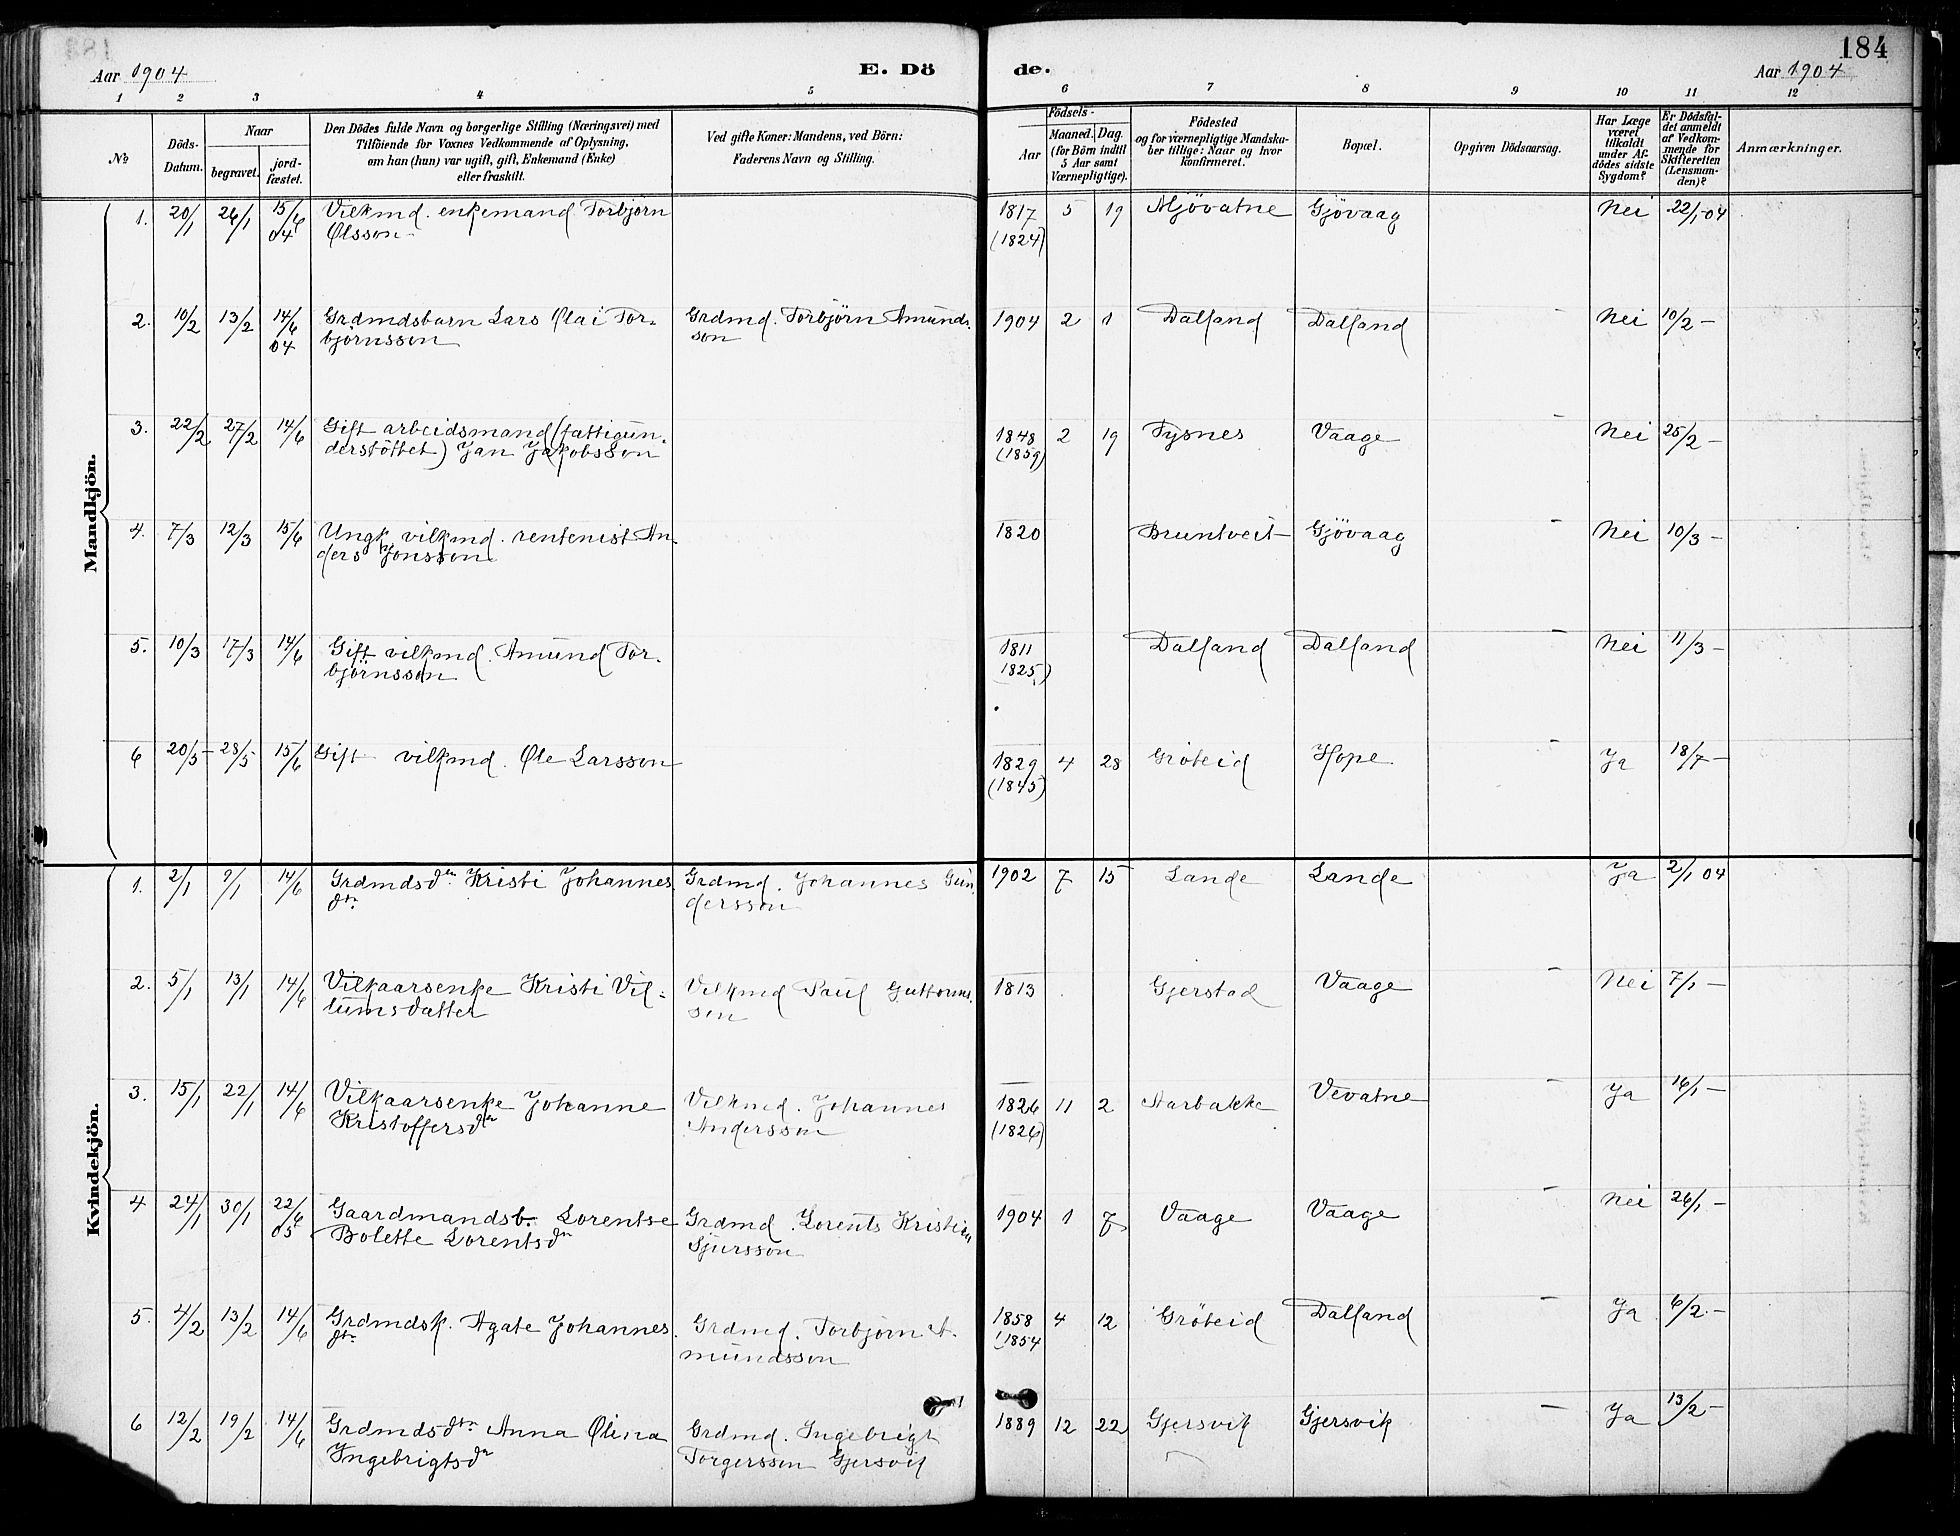 184
Aar 1904
E. Dö
de.
Aar 1904
1 2 3 4 5 6 7 8 9 10 11 12
№
Döds-
Datum.
Naar
begravet.
jord-
fæstet.
Den Dödes fulde Navn og borgerlige Stilling (Næringsvei) med
Tilföiende for Voxnes Vedkommende af Oplysning,
om han (hun) var ugift, gift, Enkemand (Enke)
eller fraskilt.
Ved gifte Koner: Mandens, ved Börn:
Faderens Navn og Stilling.
Födsels-
Aar
Maaned.
Dag.
(for Börn indtil
5 Aar samt
Værnepligtige).
Födested
og for værnepligtige Mandska-
ber tillige: Naar og hvor
konfirmeret.
Bopæl.
Opgiven Dödsaarsag.
Har Læge
været
tilkaldt
under Af-
dödes sidste
Sygdom?
Er Dödsfal-
det anmeldt
af Vedkom-
mende for
Skifteretten
(Lensman-
den)?
Anmærkninger.
Mandkjön.
1. 20/1 26/1 15/6 Vilkmd. enkemand Torbjørn 1817 5 19 Mjövatne Gjövaag Nei 22/1-04
04 Olsson (1824)
2. 10/2 13/2 14/6 Grdmdsbarn Lars Olai Tor- Grdmd. Torbjörn Amunds- 1904 2 1 Dalland Dalland Nei 10/2 –
04 björnsson son
3. 22/2 27/2 14/6 Gift arbeidsmand (fattigun- 1848 2 19 Tysnes Vaage – Nei 25/2 –
derstöttet) Jan Jakobsson (1859)
4. 7/3 12/3 15/6 Ungk. vilkmd. rentenist An- 1820 Bruntveit Gjövaag – Nei 10/3 –
ders Jonsson
5. 10/3 17/3 14/6 Gift vilkmd. Amund Tor- 1811 Dalland Dalland – Nei 11/3 –
björnsson 1825)
6 20/5 – 28/5 15/6 Gift vilkmd. Ole Larsson 1829 4 28 Gröteid Hope – Ja 18/7 –
(1845)
Kvindekjön.
1. 2/1 9/1 14/6 Grdmdsdtr Kristi Johannes Grdmd. Johannes Gun- 1902 7 15 Lande Lande Ja 2/1 04
dtr dersson
2. 5/1 13/1 14/6 Vilkaarsenke Kristi Vil- Vilkmd Paul Guttorms- 1813 Gjerstad Vaage – Nei 7/1 –
lumsdatter son
3. 15/1 22/1 14/6 Vilkaarsenke Johanne Vilkmd. Johannes 1826 11 2 Aarbakke Vevatne – Ja 16/1 –
Kristoffersdtr Andersson (1826)
4 24/1 30/1 22/6 Gaardmandsb. Lorentse Grdmd. Lorents Kristian 1904 1 7 Vaage Vaage – Nei 26/1 –
05 Bolette Lorentsdtr Sjursson
5. 4/2 13/2 14/6 Grdmdsk. Agate Johannes. Grdmd. Torbjørn A- 1858 4 12 Gröteid Dalland – Ja 6/2. –
dtr mundsson (1854
6 12/2 19/2 14/6 Grdmdsdtr Anna Olina Grdmd. Ingebrigt 1889 12 22 Gjersvik Gjersvik – Ja 13/2 –
Ingebrigtsdtr Torgersson Gjersvik